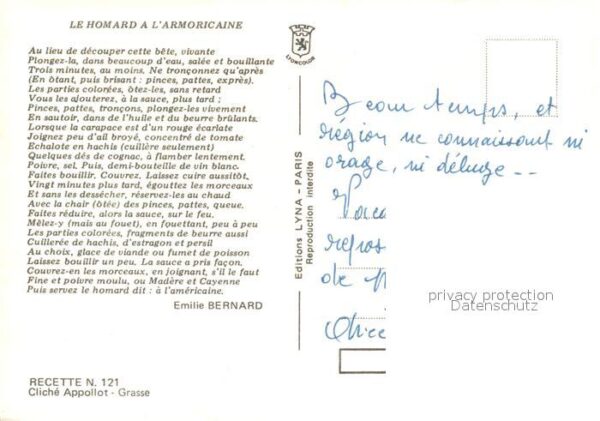 LE HOMARD A L'ARMORICAINE
Au lieu de découper cette bête, vivante
Plongez-la, dans beaucoup d'eau, salée et bouillante
Trois minutes, au moins. Ne tronçonnez qu'après
(En ôtant, puis brisant : pinces, pattes, exprès).
Les parties colorées, ôtez-les, sans retard
Vous les ajouterez, à la sauce, plus tard ;
Pinces, pattes, tronçons, plongez-les vivement
En sautoir, dans de l'huile et du beurre brûlants.
Lorsque la carapace est d'un rouge écarlate
Joignez peu d'ail broyé, concentré de tomate
Echalote en hachis (cuillère seulement)
Quelques dés de cognac, à flamber lentement.
Poivre, sel. Puis, demi-bouteille de vin blanc.
Faites bouillir. Couvrez. Laissez cuire aussitôt.
Vingt minutes plus tard, égouttez les morceaux
Et sans les dessécher, réservez-les au chaud
Avec la chair (ôtée) des pinces, pattes, queue.
Faites réduire, alors la sauce, sur le feu.
Mêlez-y (mais au fouet), en fouettant, peu à peu
Les parties colorées, fragments de beurre aussi
Cuillerée de hachis, d'estragon et persil
Au choix, glace de viande ou fumet de poisson
Laissez bouillir un peu. La sauce a pris façon.
Couvrez-en les morceaux, en joignant, s'il le faut
Fine et poivre moulu, ou Madère et Cayenne
Puis servez le homard dit : à l'américaine.
Emilie BERNARD
RECETTE N. 121
Cliché Appollot - Grasse
LYONCOLOR
Editions LYNA - PARIS
Reproduction interdite
Beau temps, et
région ne connaissant ni
orage, ni déluge --
Vaca
repos
de
privacy protection
Datenschutz